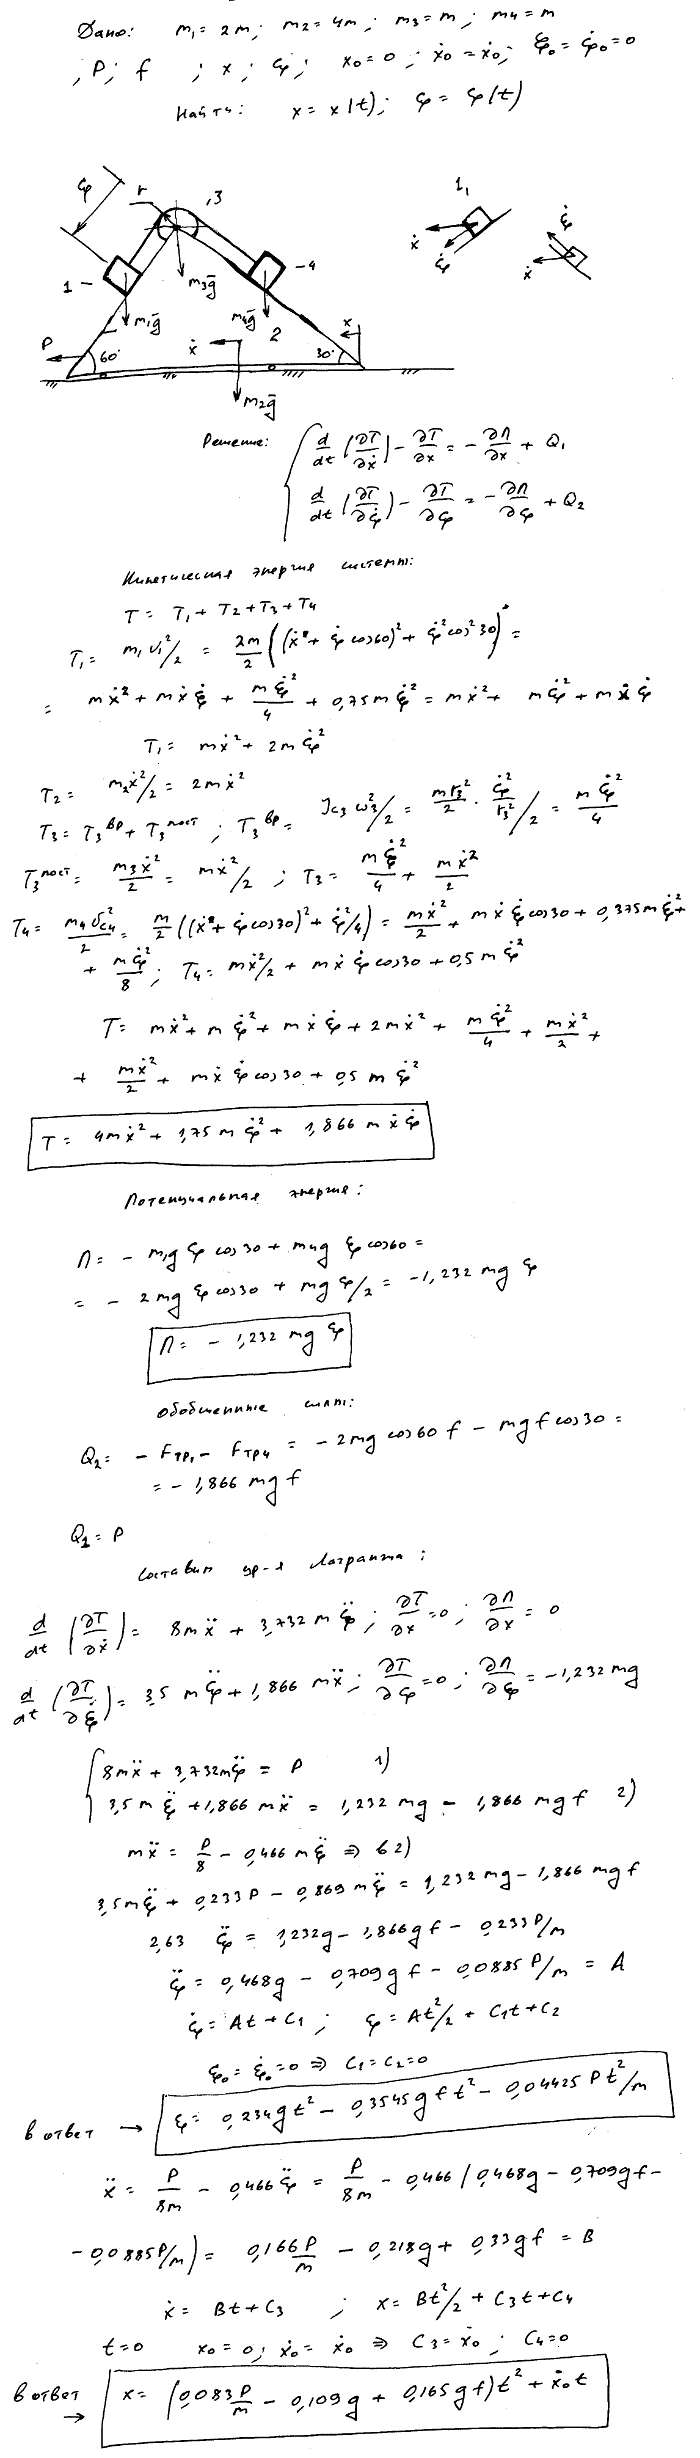 Дано: m₁ = 2m; m₂ = 4m; m₃ = m; m₄ = m
; P; f ; x; ξ; x₀ = 0; ẋ₀ = ẋ₀; ξ₀ = ξ̇₀ = 0
Найти: x = x(t); ξ = ξ(t)
ξ r ,3 1,
ẋ ξ̇ ξ̇ ẋ
1 – m₃g̅ – 4
m₁g̅ m₄g̅ 2 x
P 60° ẋ 30°
m₂g̅
Решение: d/dt (∂T/∂ẋ) − ∂T/∂x = − ∂П/∂x + Q₁
d/dt (∂T/∂ξ̇) − ∂T/∂ξ = − ∂П/∂ξ + Q₂
Кинетическая энергия системы:
T = T₁ + T₂ + T₃ + T₄
T₁ = m₁v₁²/2 = 2m/2 ((ẋ + ξ̇ cos60)² + ξ̇² cos²30) =
= mẋ² + mẋξ̇ + mξ̇²/4 + 0,75mξ̇² = mẋ² + mξ̇² + mẋξ̇
T₁ = mẋ² + 2mξ̇²
T₂ = m₂ẋ²/2 = 2mẋ²
T₃ = T₃ᵇᵖ + T₃ᵖᵒˢᵗ ; T₃ᵇᵖ = Jc₃ω₃²/2 = mr₃²/2 · ξ̇²/r₃²/2 = mξ̇²/4
T₃ᵖᵒˢᵗ = m₃ẋ²/2 = mẋ²/2 ; T₃ = mξ̇²/4 + mẋ²/2
T₄ = m₄v²c₄/2 = m/2 ((ẋ + ξ̇cos30)² + ξ̇²/4) = mẋ²/2 + mẋξ̇cos30 + 0,375mξ̇² +
+ mξ̇²/8 ; T₄ = mẋ²/2 + mẋξ̇cos30 + 0,5mξ̇²
T = mẋ² + mξ̇² + mẋξ̇ + 2mẋ² + mξ̇²/4 + mẋ²/2 +
+ mẋ²/2 + mẋξ̇cos30 + 0,5mξ̇²
T = 4mẋ² + 1,75mξ̇² + 1,866mẋξ̇
Потенциальная энергия:
П = − m₁gξcos30 + m₄gξcos60 =
= − 2mgξcos30 + mgξ/2 = −1,232mgξ
П = − 1,232mgξ
Обобщенные силы:
Q₂ = − Fтр₁ − Fтр₄ = − 2mg cos60 f − mgf cos30 =
= − 1,866mgf
Q₁ = P
Составим ур-я Лагранжа:
d/dt (∂T/∂ẋ) = 8mẍ + 3,732mξ̈ ; ∂T/∂x = 0 ; ∂П/∂x = 0
d/dt (∂T/∂ξ̇) = 3,5mξ̈ + 1,866mẍ ; ∂T/∂ξ = 0 ; ∂П/∂ξ = −1,232mg
8mẍ + 3,732mξ̈ = P 1)
3,5mξ̈ + 1,866mẍ = 1,232mg − 1,866mgf 2)
mẍ = P/8 − 0,466mξ̈ ⇒ в 2)
3,5mξ̈ + 0,233P − 0,869mξ̈ = 1,232mg − 1,866mgf
2,63 ξ̈ = 1,232g − 1,866gf − 0,233P/m
ξ̈ = 0,468g − 0,709gf − 0,0885P/m = A
ξ̇ = At + C₁ ; ξ = At²/2 + C₁t + C₂
ξ₀ = ξ̇₀ = 0 ⇒ C₁ = C₂ = 0
в ответ → ξ = 0,234gt² − 0,3545gft² − 0,04425Pt²/m
ẍ = P/8m − 0,466ξ̈ = P/8m − 0,466(0,468g − 0,709gf −
− 0,0885P/m) = 0,166P/m − 0,218g + 0,33gf = B
ẋ = Bt + C₃ ; x = Bt²/2 + C₃t + C₄
t = 0 x₀ = 0; ẋ₀ = ẋ₀ ⇒ C₃ = ẋ₀ ; C₄ = 0
в ответ → x = (0,083P/m − 0,109g + 0,165gf)t² + ẋ₀t